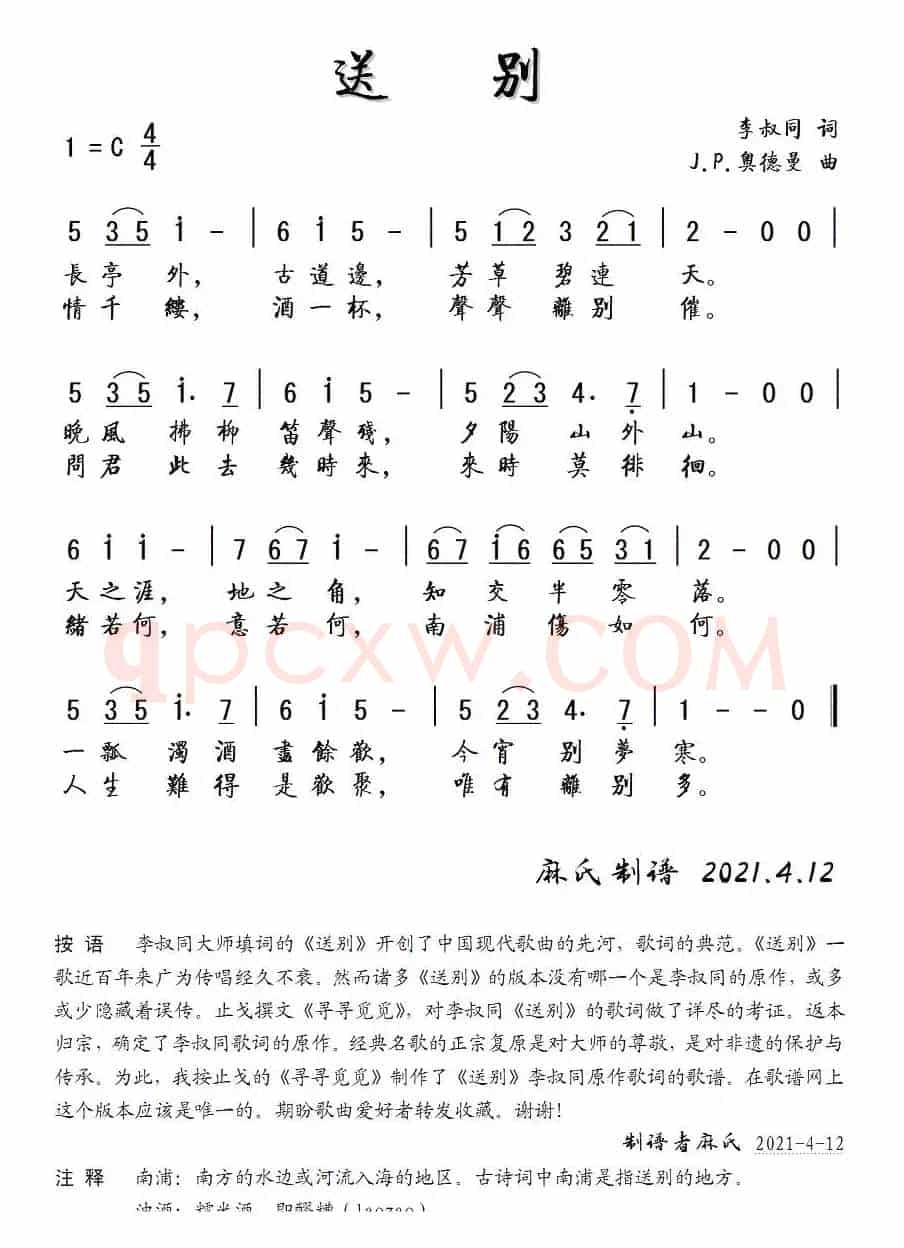 送 别
1 = C 4/4
李叔同 词
J.P.奥德曼 曲
5 3 5 i - | 6 i 5 - | 5 1 2 3 2 1 | 2 - 0 0 |
長亭 外， 古道邊， 芳草 碧連 天。
情千 縷， 酒一杯， 聲聲 離别 催。
5 3 5 i. 7 | 6 i 5 - | 5 2 3 4. 7 | 1 - 0 0 |
晚風 拂柳 笛聲殘， 夕陽 山外 山。
問君 此去 幾時來， 來時 莫徘 徊。
6 i i - | 7 6 7 i - | 6 7 i 6 6 5 3 1 | 2 - 0 0 |
天之涯， 地之角， 知交半零 落。
緒若何， 意若何， 南浦傷如 何。
5 3 5 i. 7 | 6 i 5 - | 5 2 3 4. 7 | 1 - - 0 ‖
一瓢 濁酒 盡餘歡， 今宵 别夢 寒。
人生 難得 是歡聚， 唯有 離别 多。
qpcxw.COM
麻氏制谱 2021.4.12
按语 李叔同大师填词的《送别》开创了中国现代歌曲的先河，歌词的典范。《送别》一
歌近百年来广为传唱经久不衰。然而诸多《送别》的版本没有哪一个是李叔同的原作，或多
或少隐藏着误传。止戈撰文《寻寻觅觅》，对李叔同《送别》的歌词做了详尽的考证。返本
归宗，确定了李叔同歌词的原作。经典名歌的正宗复原是对大师的尊敬，是对非遗的保护与
传承。为此，我按止戈的《寻寻觅觅》制作了《送别》李叔同原作歌词的歌谱。在歌谱网上
这个版本应该是唯一的。期盼歌曲爱好者转发收藏。谢谢！
制谱者麻氏 2021-4-12
注释 南浦：南方的水边或河流入海的地区。古诗词中南浦是指送别的地方。